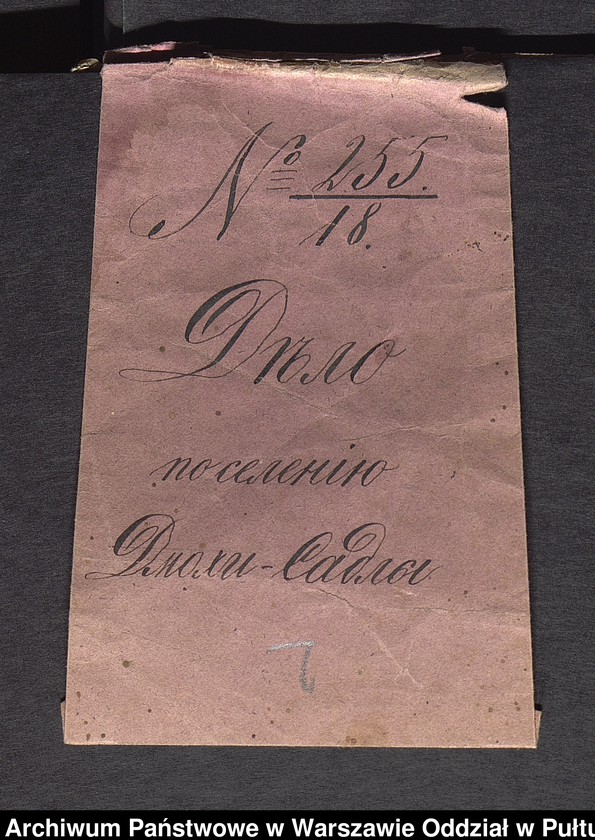 № 255.
18.
Дѣло
по селенію
Дмохи-Садлы
7
Archiwum Państwowe w Warszawie Oddział w Pułtu